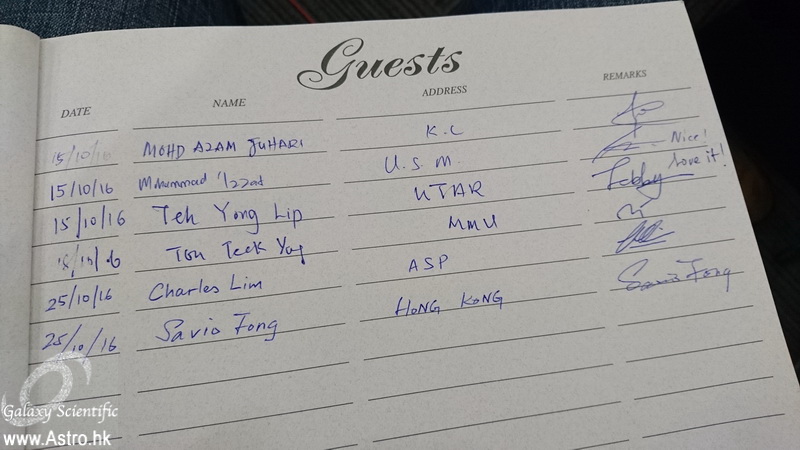 Guests
DATE NAME ADDRESS REMARKS
15/10/16 MOHD AZAM JUHARI K.L
15/10/16 Muhammad 'Izzat U.S.M. Nice! Love it!
15/10/16 Teh Yong Lip UTAR
15/10/16 Tan Teck MMU
25/10/16 Charles Lim ASP
25/10/16 Savio Fong HONG KONG Savio Fong
Galaxy Scientific
www.Astro.hk